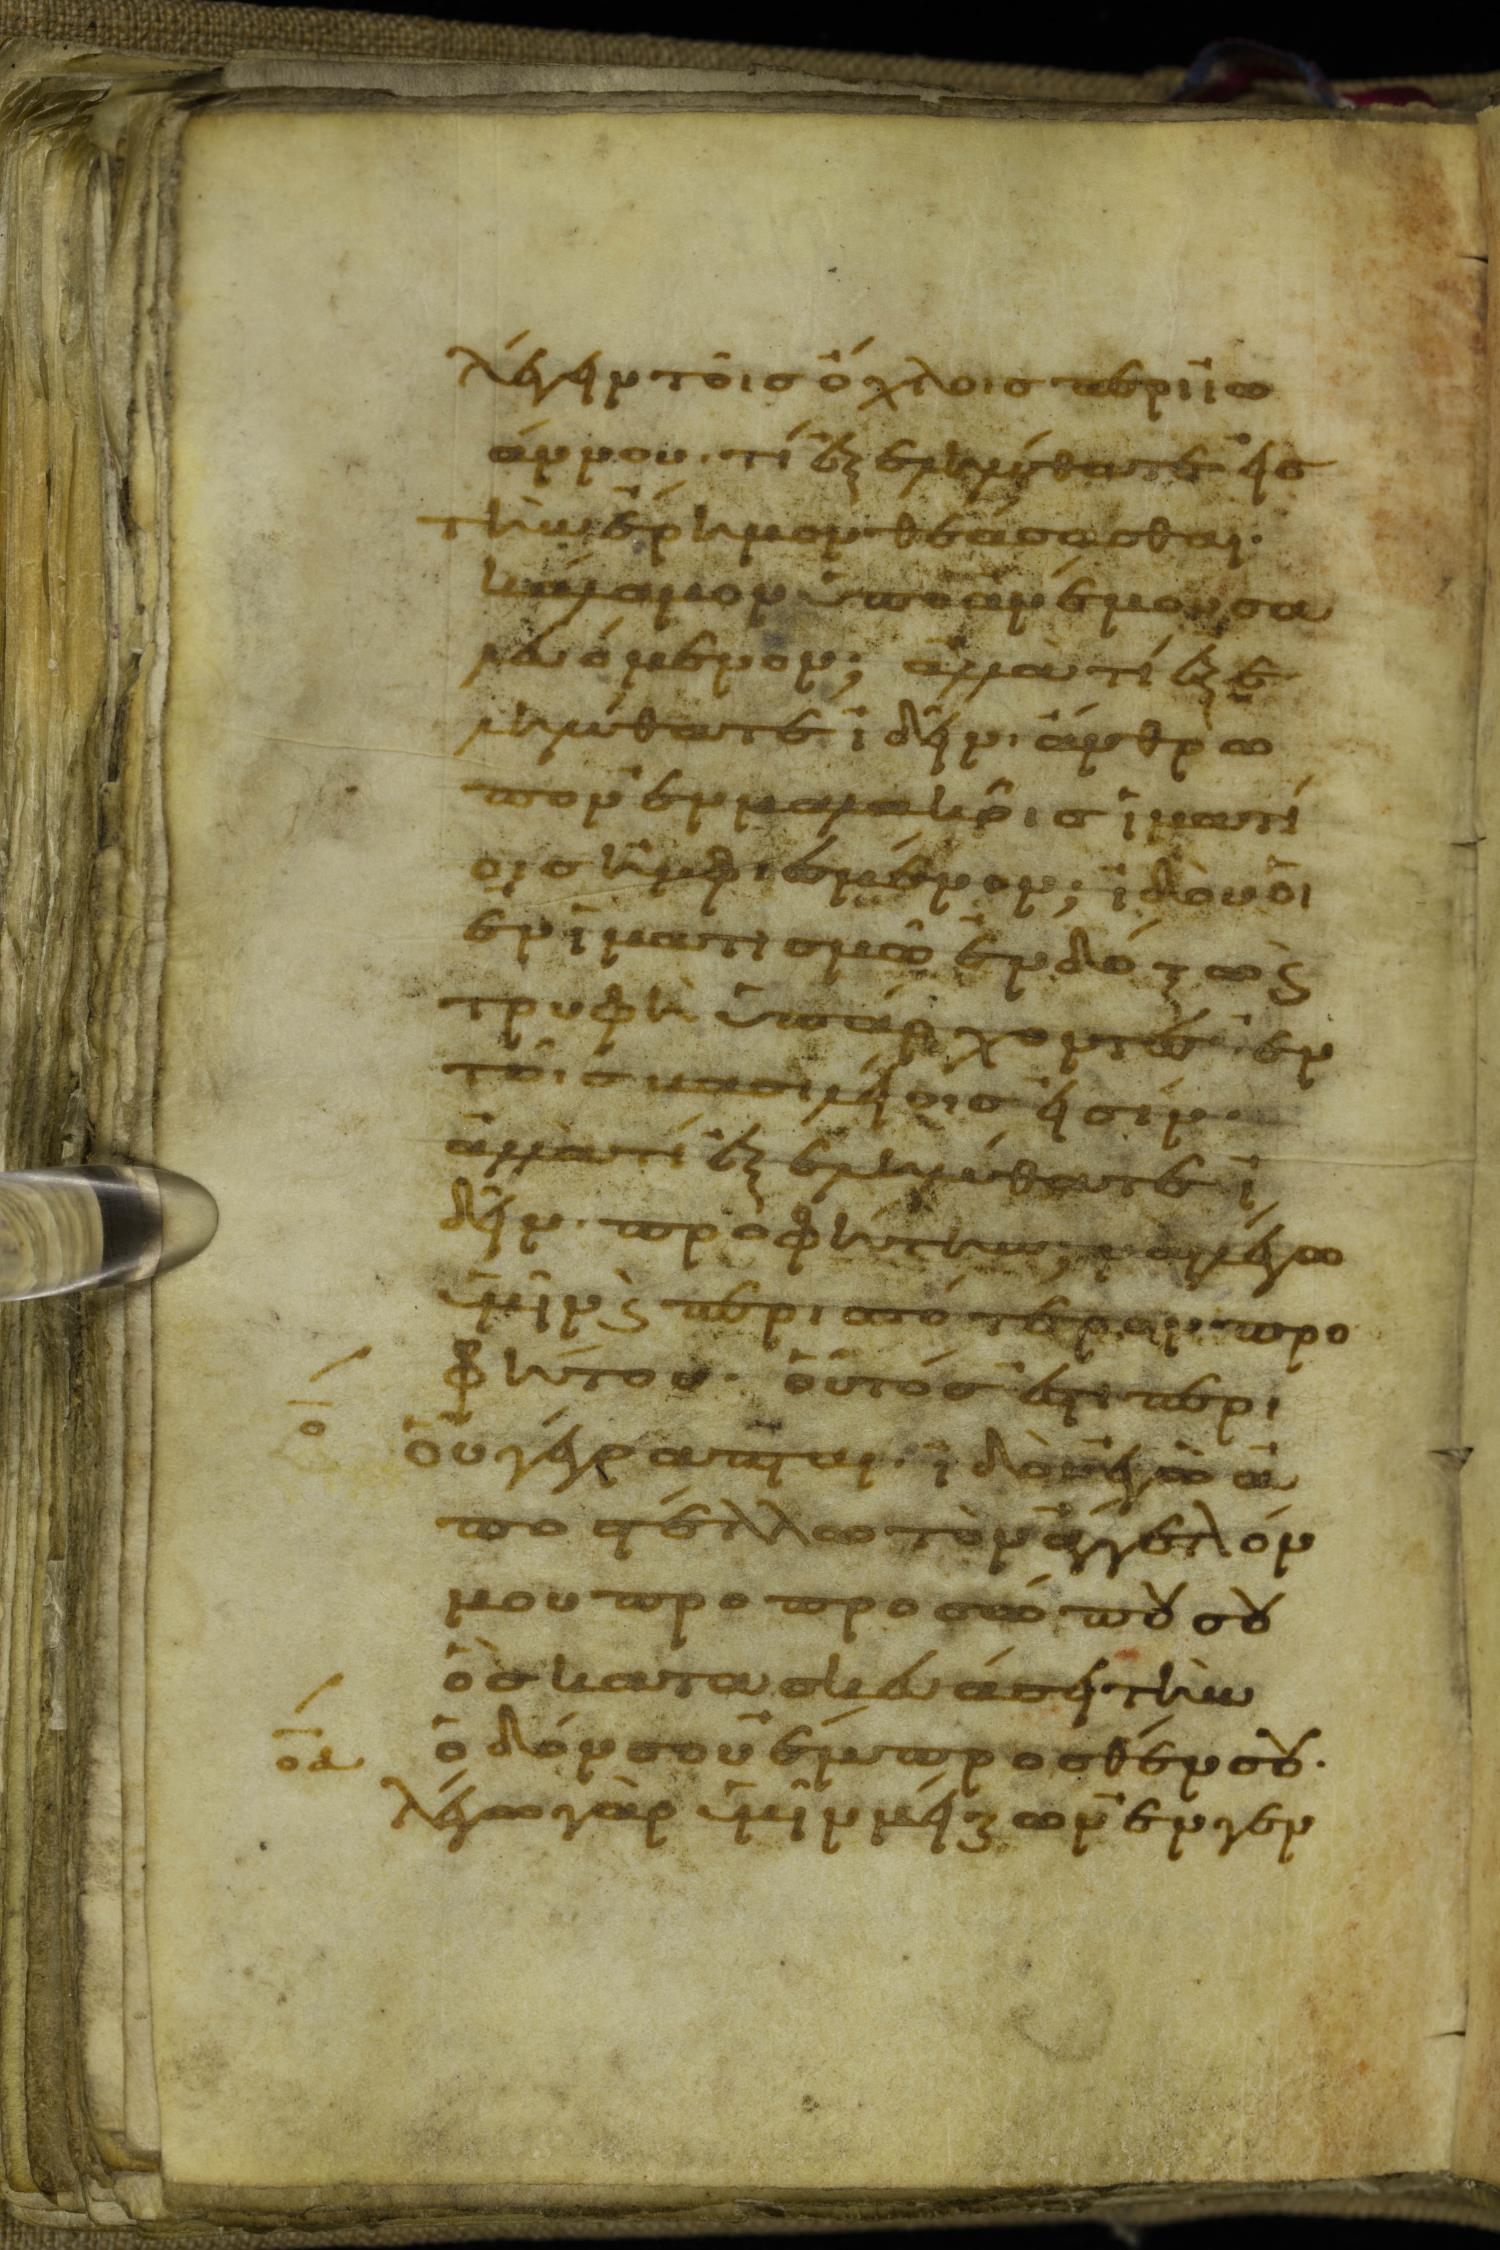 λέγειν τοῖσ ὄχλοισ περὶ ϊω
άννου· τί ἐξεληλύθατε εἰσ
τὴν ἔρημον θεάσασθαι·
κάλαμον ὑπο ἀνέμου σα
λευόμενον; ἀλλὰ τί ἐξε
ληλύθατε ἰδεῖν· ἄνθρω
πον ἐν μαλακοῖσ ἱματί
οισ ἠμφιεσμένον; ἰδοὺ οἱ
ἐν ἱματισμῶ ἐνδόξω ϗ
τρυφὴ ὑπάρχοντεσ ἐν
τοῖσ βασιλείοισ εἰσίν·
ἀλλὰ τί ἐξεληλύθατε ἰ
δεῖν· προφήτην; ναι λέγω
ὑμῖν ϗ περισσότερον προ
φήτου· οὗτόσ ἐστι περι
ο
οὗ γέγραπται· ἰδοὺ ἐγὼ ἀ
ποστέλλω τὸν ἄγγελόν
μου προ προσώπου σου
ὃσ κατασκευάσει τὴν
οα
ὁδόν σου ἔμπροσθέν σου·
λέγω γὰρ ὑμῖν μείζων ἐν γεν